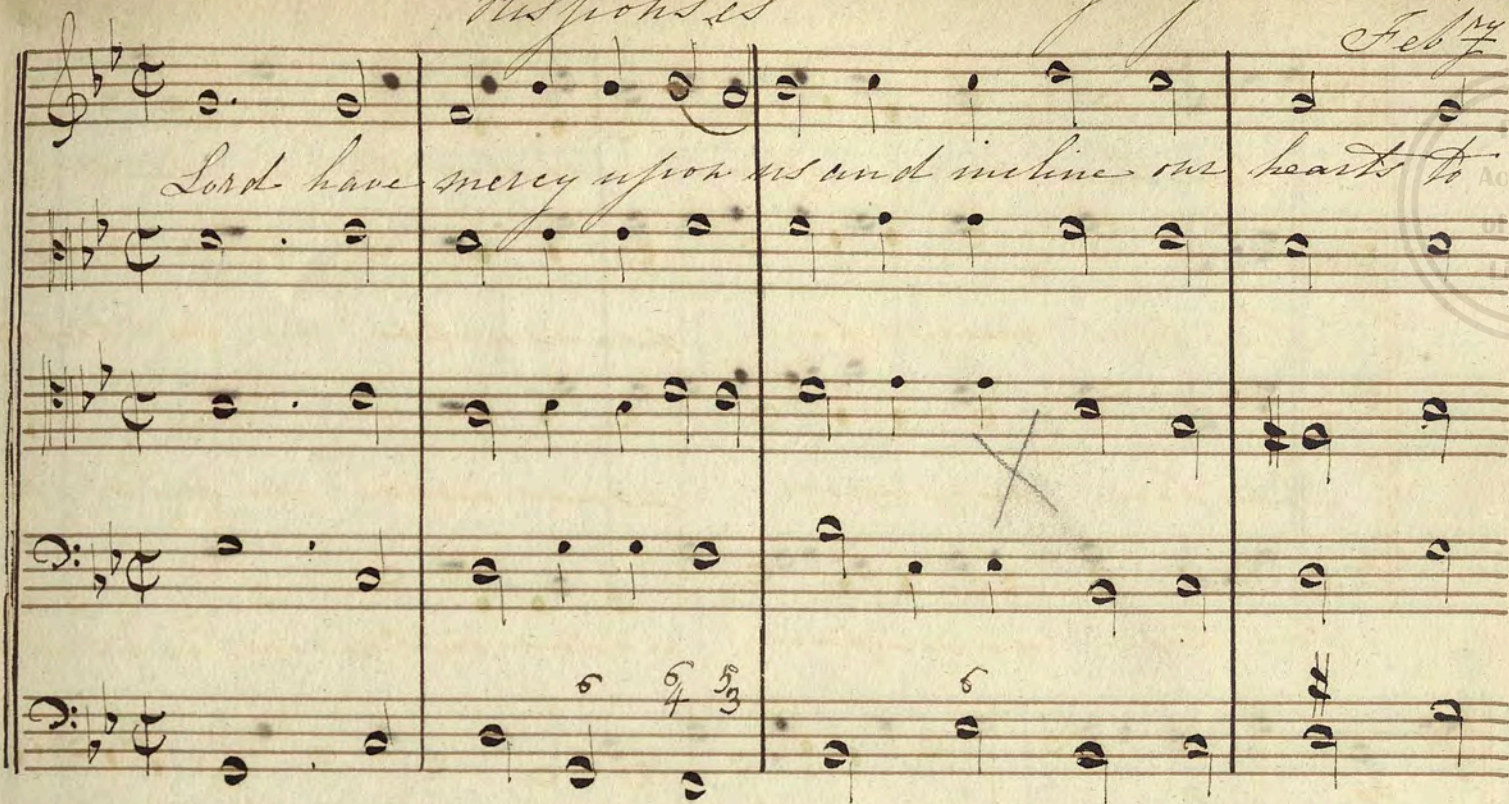 Responses
Feb 7
Lord have mercy upon us and incline our hearts to
6 6 5 6
4 3